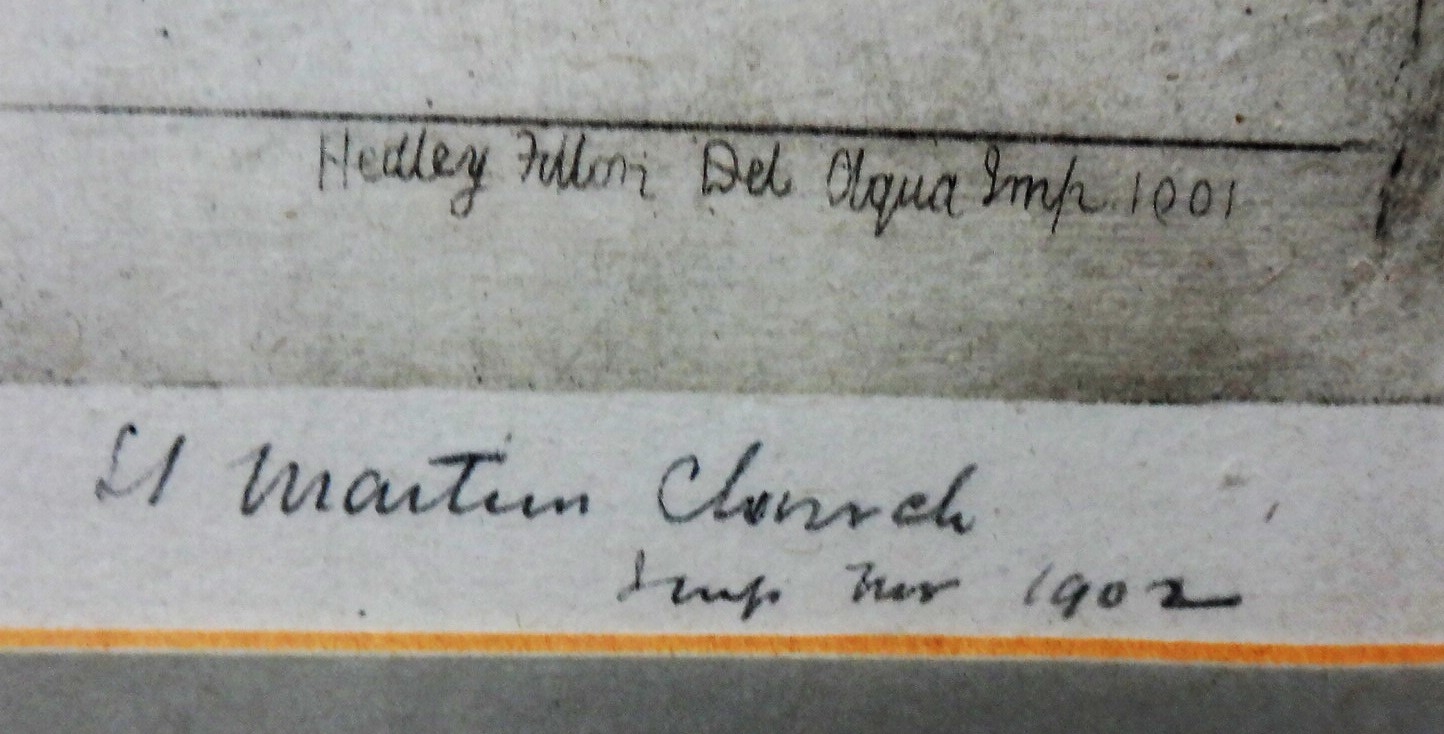 Hedley Fitton Del Aqua Imp. 1901
St Martin Church
Imp Nov 1902